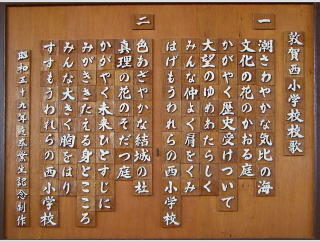 敦賀西小学校校歌
一
潮さわやかな気比の海
文化の花のかおる庭
かがやく歴史受けついで
大望のゆめあたらしく
みんな仲よく肩をくみ
はげもうわれらの西小学校
二
色あざやかな結城の杜
真理の花のそだつ庭
かがやく未来ひとすじに
みがききたえる身とこころ
みんな大きく胸をはり
すすもうわれらの西小学校
昭和五十九年度卒業生記念制作